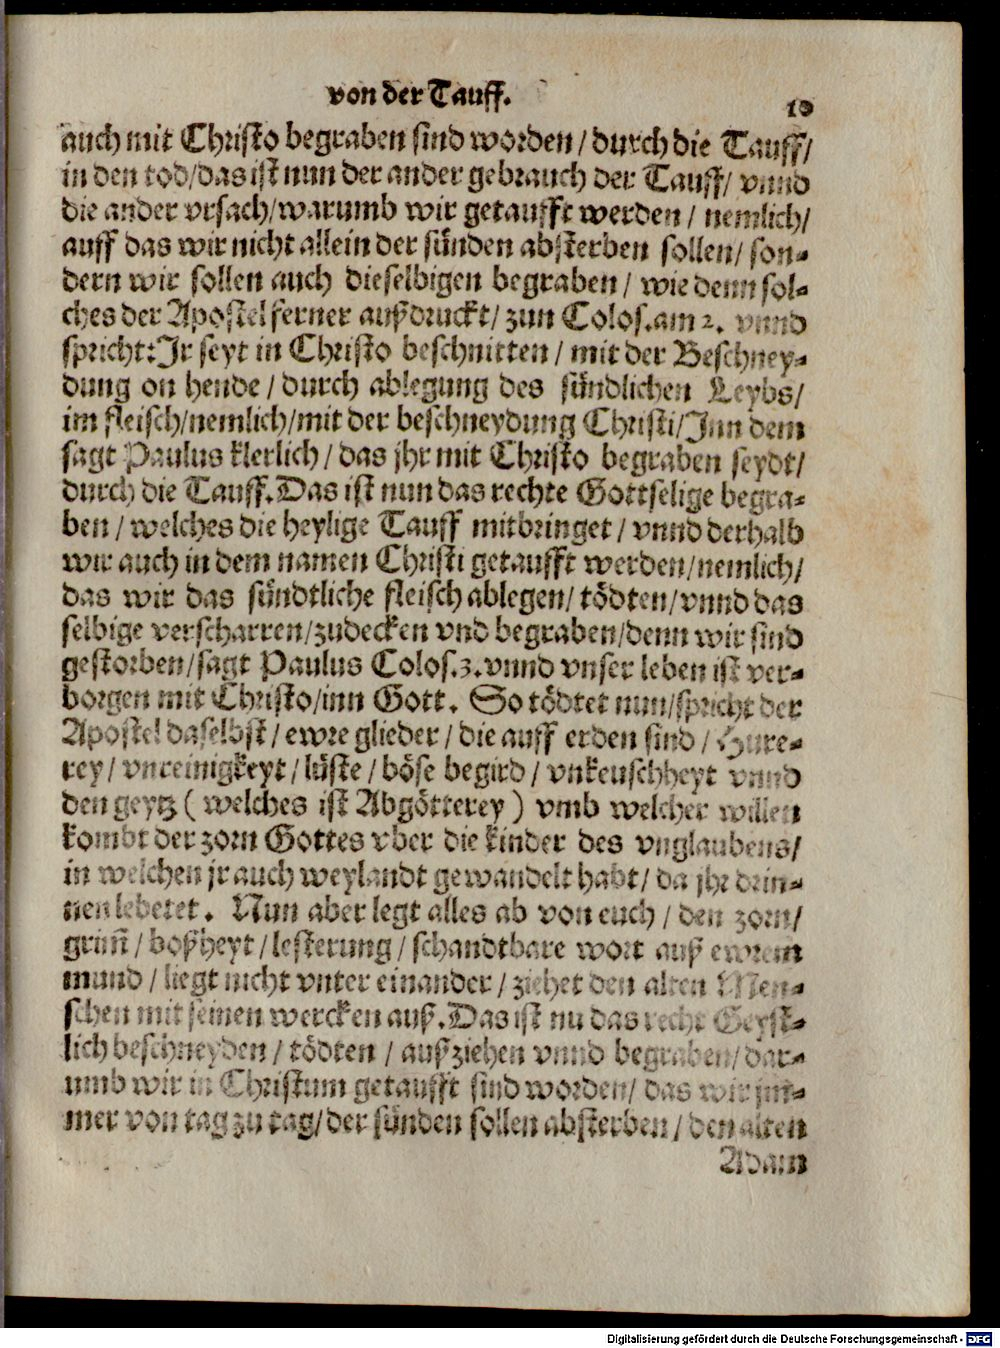 von der Tauff.
10
auch mit Christo begraben sind worden / durch die Tauff/
in den tod/das ist nun der ander gebrauch der Tauff/ vnnd
die ander vrsach/warumb wir getaufft werden / nemlich/
auff das wir nicht allein der sünden absterben sollen/ son-
dern wir sollen auch dieselbigen begraben / wie denn sol-
ches der Apostel ferner außdruckt/ zun Colos.am 2. vnnd
spricht:Jr seyt in Christo beschnitten / mit der Beschney-
dung on hende / durch ablegung des sündlichen Leybs/
im fleisch/nemlich/mit der beschneydung Christi/Jnn dem
sagt Paulus klerlich / das jhr mit Christo begraben seydt/
durch die Tauff.Das ist nun das rechte Gottselige begra-
ben / welches die heylige Tauff mitbringet / vnnd derhalb
wir auch in dem namen Christi getaufft werden/nemlich/
das wir das sündtliche fleisch ablegen/ tödten/vnnd das
selbige verscharren/zudecken vnd begraben/denn wir sind
gestorben/sagt Paulus Colos.3.vnnd vnser leben ist ver-
borgen mit Christo/inn Gott. So tödtet nun/spricht der
Apostel daselbst / ewre glieder / die auff erden sind / Hure-
rey / vnreinigkeyt / lüste / böse begird / vnkeuschheyt vnnd
den geytz ( welches ist Abgötterey ) vmb welcher willen
kombt der zorn Gottes vber die kinder des vnglaubens/
in welchen jr auch weylandt gewandelt habt/ da jhr drin-
nen lebetet. Nun aber legt alles ab von euch / den zorn/
grim̃ / boßheyt / lesterung / schandtbare wort auß ewrem
mund / liegt nicht vnter einander / ziehet den alten Men-
schen mit seinen wercken auß.Das ist nu das recht Geyst-
lich beschneyden / tödten / außziehen vnnd begraben/ dar-
umb wir in Christum getaufft sind worden/ das wir jm-
mer von tag zu tag/der sünden sollen absterben / den alten
Adam
Digitalisierung gefördert durch die Deutsche Forschungsgemeinschaft - DFG